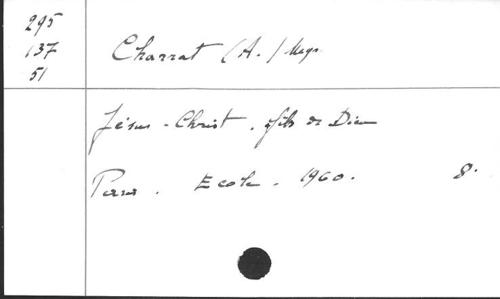 295
137
51
Charrat (A.) Mgr
Jésus-Christ, fils de Dieu
Paris. Ecole. 1960. 8°